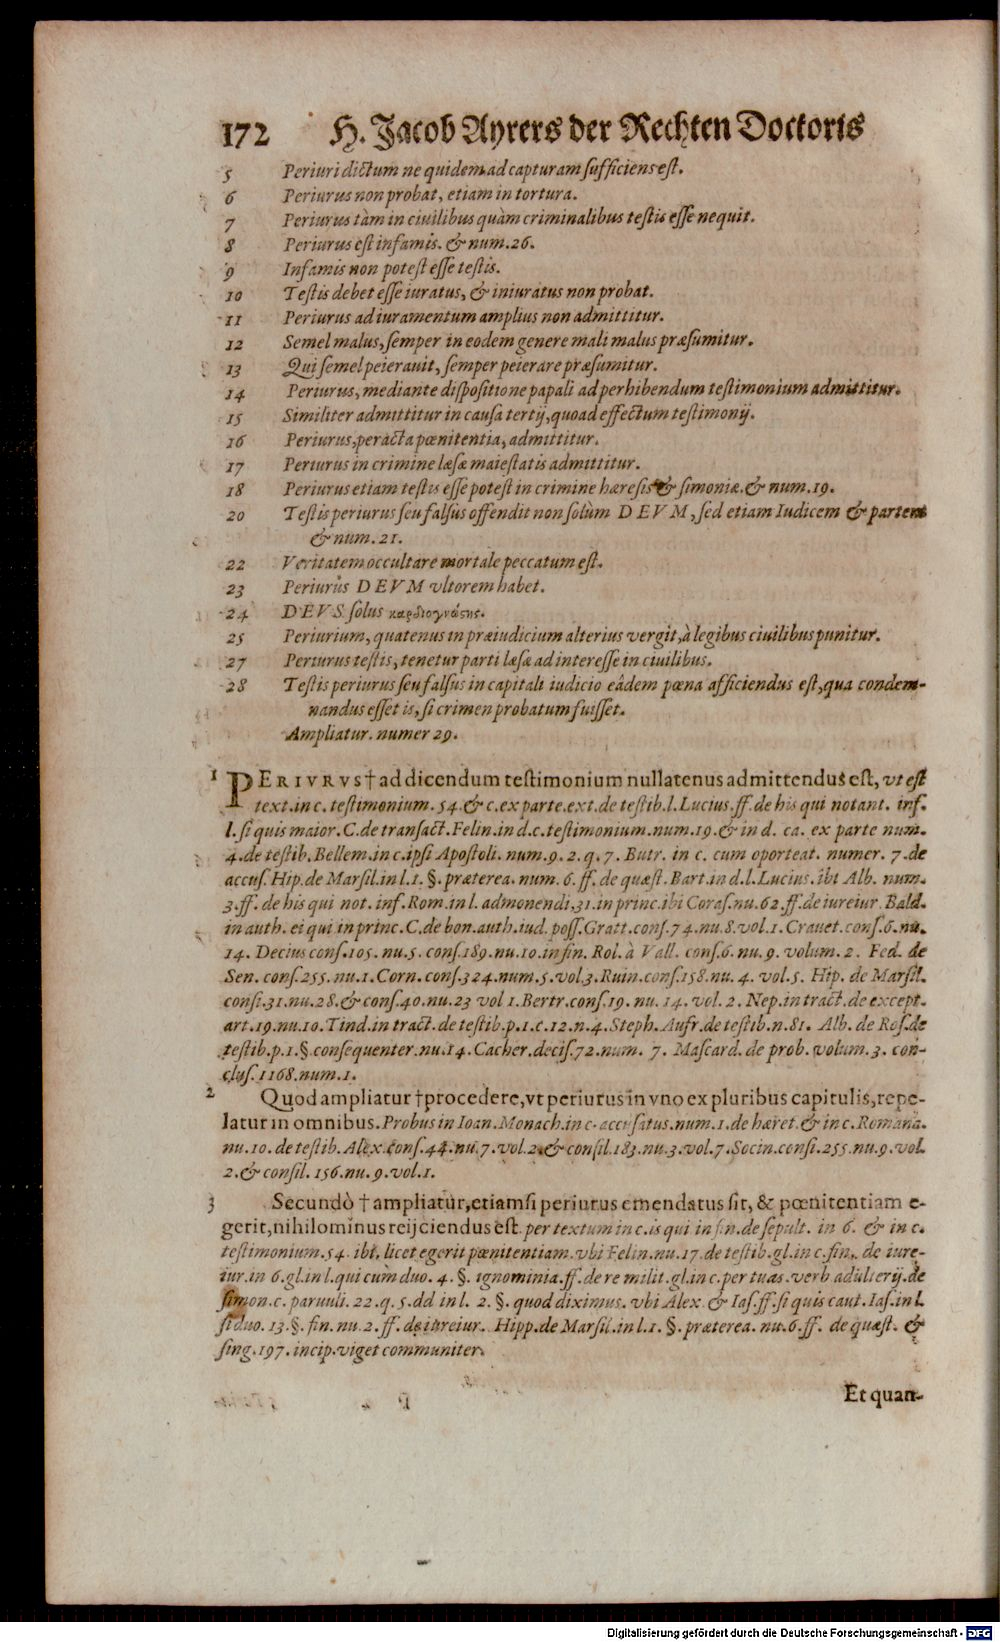 172 H. Jacob Ayrers der Rechten Doctoris
5 Periuri dictum ne quidem ad capturam ſufficiens eſt.
6 Periurus non probat, etiam in tortura.
7 Periurus tàm in ciuilibus quàm criminalibus teſtis eſſe nequit.
8 Periurus eſt infamis. & num. 26.
9 Infamis non poteſt eſſe teſtis.
10 Teſtis debet eſſe iuratus, & iniuratus non probat.
11 Periurus ad iuramentum amplius non admittitur.
12 Semel malus, ſemper in eodem genere mali malus præſumitur.
13 Qui ſemel peierauit, ſemper peierare præſumitur.
14 Periurus, mediante diſpoſitione papali ad perhibendum teſtimonium admittitur.
15 Similiter admittitur in cauſa tertij, quoad effectum teſtimonij.
16 Periurus, peracta pœnitentia, admittitur.
17 Periurus in crimine læſæ maieſtatis admittitur.
18 Periurus etiam teſtis eſſe poteſt in crimine hæreſis & ſimoniæ. & num. 19.
20 Teſtis periurus ſeu falſus offendit non ſolùm DEVM, ſed etiam Iudicem & partem
& num. 21.
22 Veritatem occultare mortale peccatum eſt.
23 Periurus DEVM vltorem habet.
24 DEVS ſolus καρδιογνώςης.
25 Periurium, quatenus in præiudicium alterius vergit, à legibus ciuilibus punitur.
27 Periurus teſtis, tenetur parti læſæ ad intereſſe in ciuilibus.
28 Teſtis periurus ſeu falſus in capitali iudicio eâdem pœna afficiendus eſt, qua condem-
nandus eſſet is, ſi crimen probatum fuiſſet.
Ampliatur. numer 29.
1 PERIVRVS † ad dicendum teſtimonium nullatenus admittendus eſt, vt eſt
text. in c. teſtimonium. 54. & c. ex parte. ext. de teſtib. l. Lucius. ff. de his qui notant. inf.
l. ſi quis maior. C. de tranſact. Felin. in d. c. teſtimonium. num. 19. & in d. ca. ex parte num.
4. de teſtib. Bellem. in c. ipſi Apoſtoli. num. 9. 2. q. 7. Butr. in c. cum oporteat. numer. 7. de
accuſ. Hip. de Marſil. in l. 1. §. præterea. num. 6. ff. de quæſt. Bart. in d. l. Lucius. ibi Alb. num.
3. ff. de his qui not. inf. Rom. in l. admonendi, 31. in princ. ibi Coraſ. nu. 62. ff. de iureiur. Bald.
in auth. ei qui in princ. C. de bon. auth. iud. poſſ. Gratt. conſ. 74. nu. 8. vol. 1. Crauet. conſ. 6. nu.
14. Decius conſ. 105. nu. 5. conſ. 189. nu. 10. in fin. Rol. à Vall. conſ. 6. nu. 9. volum. 2. Fed. de
Sen. conſ. 255. nu. 1. Corn. conſ. 324. num. 5. vol. 3. Ruin. conſ. 158. nu. 4. vol. 5. Hip. de Marſil.
conſi. 31. nu. 28. & conſ. 40. nu. 23 vol 1. Bertr. conſ. 19. nu. 14. vol. 2. Nep. in tract. de except.
art. 19. nu. 10. Tind. in tract. de teſtib. p. 1. c. 12. n. 4. Steph. Aufr. de teſtib. n. 81. Alb. de Roſ. de
teſtib. p. 1. § conſequenter. nu. 14. Cacher. deciſ. 72. num. 7. Maſcard. de prob. volum. 3. con-
cluſ. 1168. num. 1.
2 Quod ampliatur † procedere, vt periurus in vno ex pluribus capitulis, repe-
latur in omnibus. Probus in Ioan. Monach. in c. accuſatus. num. 1. de hæret. & in c. Romana.
nu. 10. de teſtib. Alex. conſ. 44. nu. 7. vol. 2. & conſil. 183. nu. 3. vol. 7. Socin. conſi. 255. nu. 9. vol.
2. & conſil. 156. nu. 9. vol. 1.
3 Secundò † ampliatur, etiamſi periurus emendatus ſit, & pœnitentiam e-
gerit, nihilominus reijciendus eſt. per textum in c. is qui in fin. de ſepult. in 6. & in c.
teſtimonium. 54. ibi, licet egerit pœnitentiam. vbi Felin. nu. 17. de teſtib. gl. in c. fin. de iure-
iur. in 6. gl. in l. qui cum duo. 4. §. ignominia. ff. de re milit. gl. in c. per tuas. verb adulterij. de
ſimon. c. paruuli. 22. q. 5. dd in l. 2. §. quod diximus. vbi Alex & Iaſ. ff. ſi quis caut. Iaſ. in l.
ſi duo. 13. §. fin. nu. 2. ff. de iureiur. Hipp. de Marſil. in l. 1. §. præterea. nu. 6. ff. de quæſt. &
ſing. 197. incip. viget communiter.
Et quan-
Digitalisierung gefördert durch die Deutsche Forschungsgemeinschaft - DFG